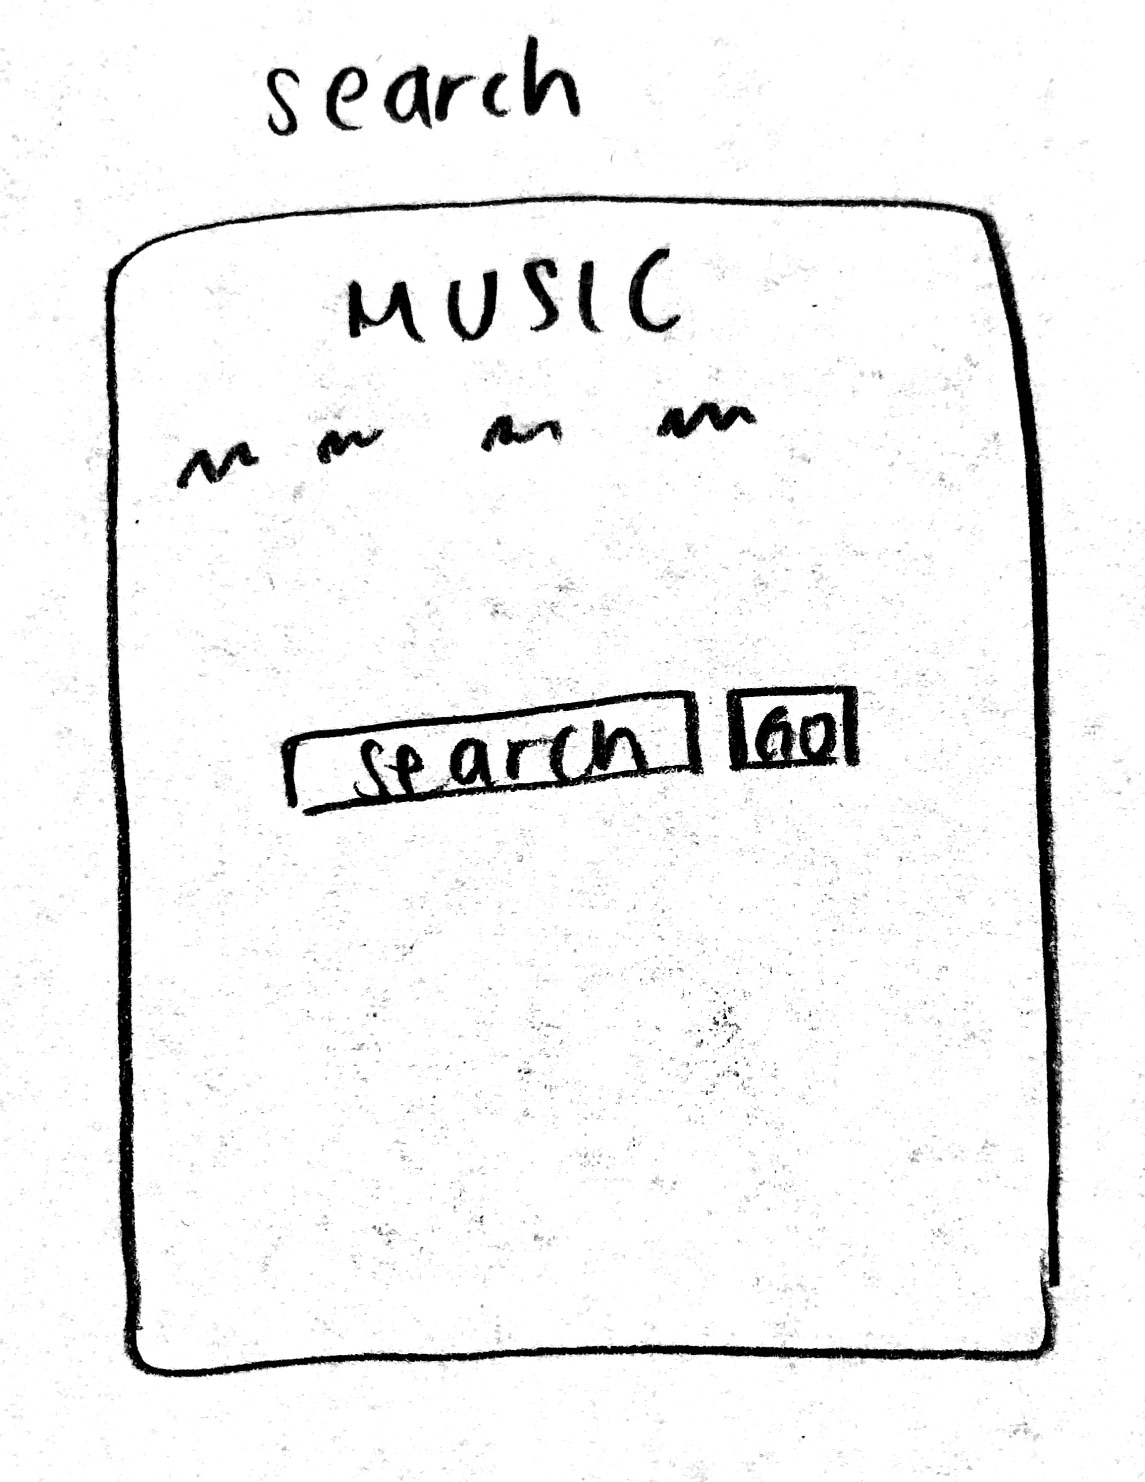 search
MUSIC
search GO